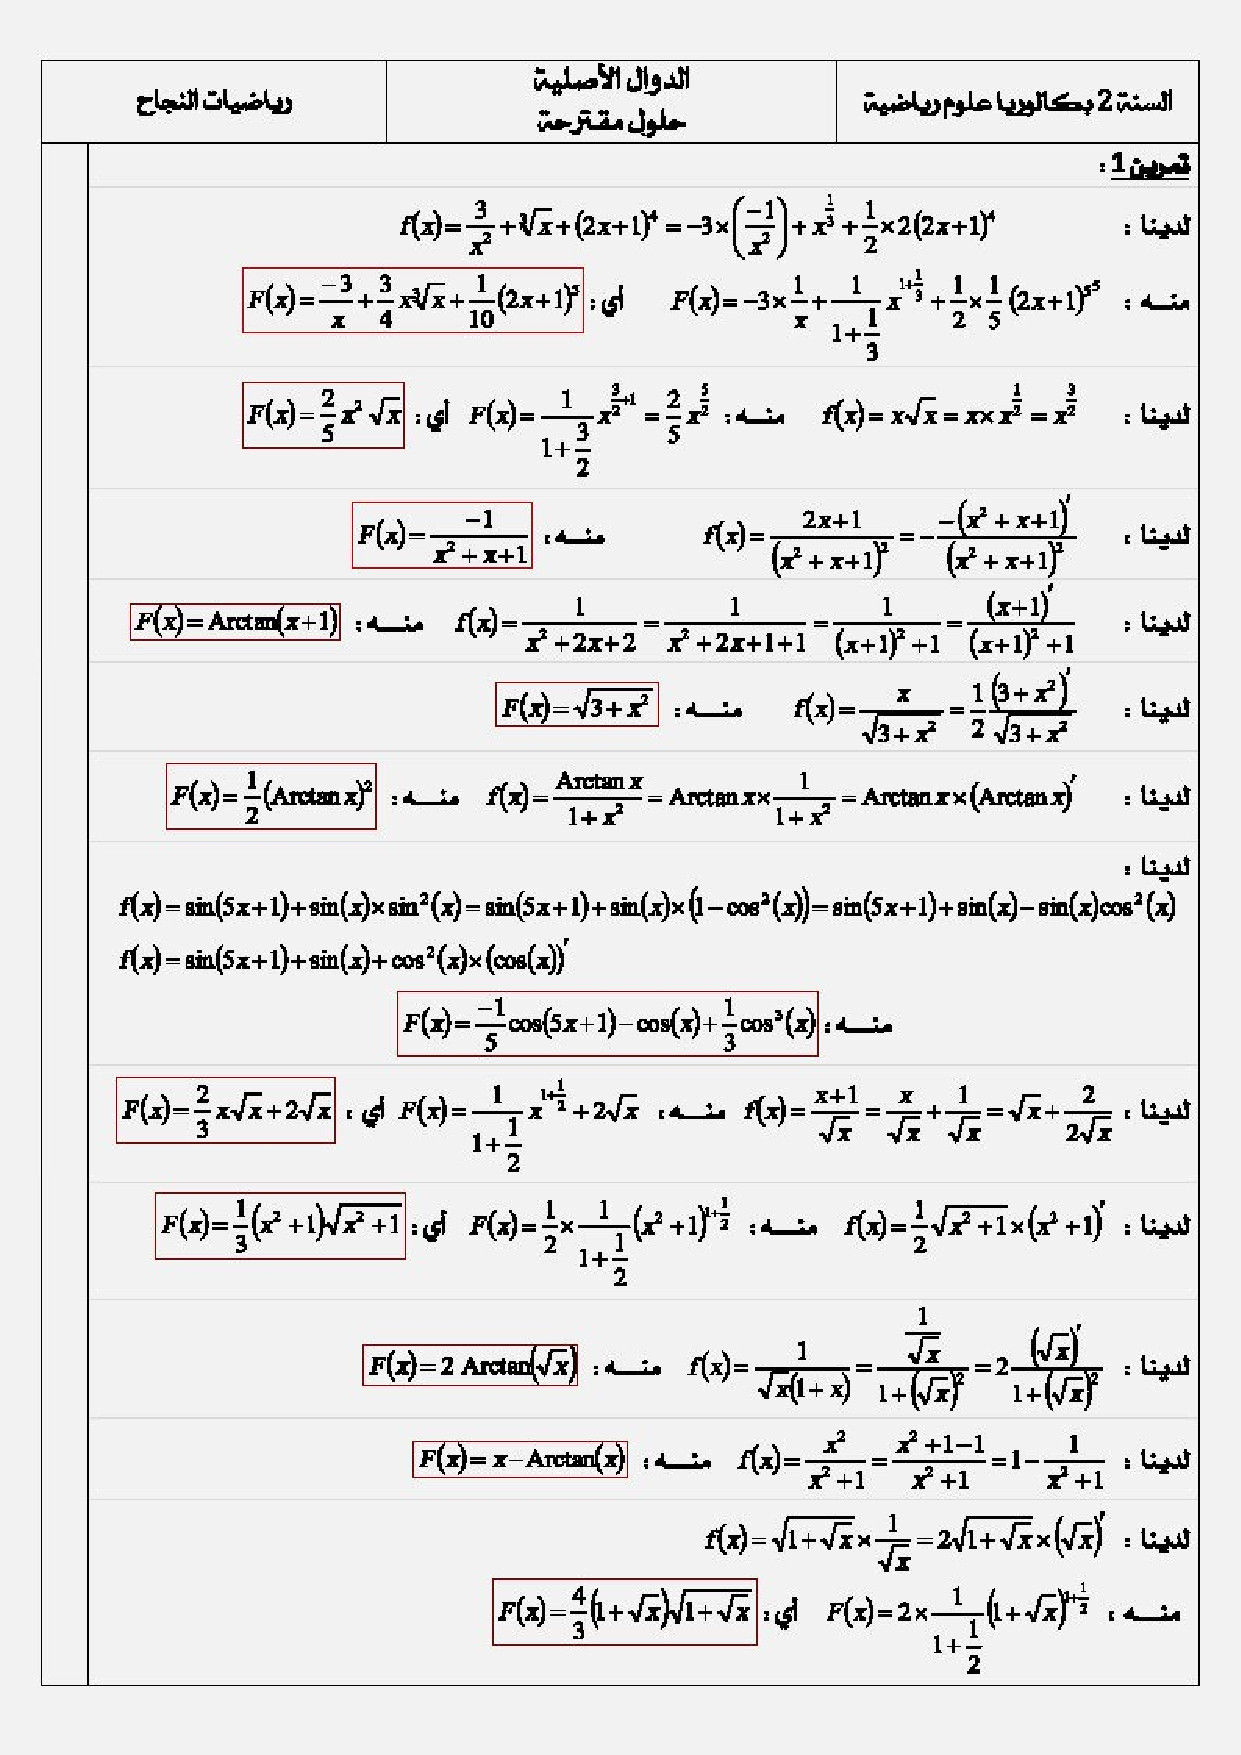 السنة 2 بكالوريا علوم رياضية
الدوال الأصلية
حلول مقترحة
رياضيات النجاح
تمرين 1 :
لدينا : f(x) = 3/x² + ∛x + (2x+1)⁴ = −3×(−1/x²) + x^(1/3) + 1/2 × 2(2x+1)⁴
منـــه : F(x) = −3×1/x + 1/(1+1/3) x^(1+1/3) + 1/2 × 1/5 (2x+1)^5^5 أي : F(x) = −3/x + 3/4 x∛x + 1/10 (2x+1)⁵
لدينا : f(x) = x√x = x × x^(1/2) = x^(3/2) منـــه : F(x) = 1/(1+3/2) x^(3/2+1) = 2/5 x^(5/2) أي : F(x) = 2/5 x² √x
لدينا : f(x) = (2x+1)/(x²+x+1)² = − −(x²+x+1)′/(x²+x+1)² منـــه : F(x) = −1/(x²+x+1)
لدينا : f(x) = 1/(x²+2x+2) = 1/(x²+2x+1+1) = 1/((x+1)²+1) = (x+1)′/((x+1)²+1) منـــه : F(x) = Arctan(x+1)
لدينا : f(x) = x/√(3+x²) = 1/2 (3+x²)′/√(3+x²) منـــه : F(x) = √(3+x²)
لدينا : f(x) = Arctan x/(1+x²) = Arctan x × 1/(1+x²) = Arctan x × (Arctan x)′ منـــه : F(x) = 1/2 (Arctan x)²
لدينا :
f(x) = sin(5x+1) + sin(x) × sin²(x) = sin(5x+1) + sin(x) × (1−cos²(x)) = sin(5x+1) + sin(x) − sin(x)cos²(x)
f(x) = sin(5x+1) + sin(x) + cos²(x) × (cos(x))′
منـــه : F(x) = −1/5 cos(5x+1) − cos(x) + 1/3 cos³(x)
لدينا : f(x) = (x+1)/√x = x/√x + 1/√x = √x + 2/(2√x) منـــه : F(x) = 1/(1+1/2) x^(1+1/2) + 2√x أي : F(x) = 2/3 x√x + 2√x
لدينا : f(x) = 1/2 √(x²+1) × (x²+1)′ منـــه : F(x) = 1/2 × 1/(1+1/2) (x²+1)^(1+1/2) أي : F(x) = 1/3 (x²+1)√(x²+1)
لدينا : f(x) = 1/(√x(1+x)) = (1/√x)/(1+(√x)²) = 2 (√x)′/(1+(√x)²) منـــه : F(x) = 2 Arctan(√x)
لدينا : f(x) = x²/(x²+1) = (x²+1−1)/(x²+1) = 1 − 1/(x²+1) منـــه : F(x) = x − Arctan(x)
لدينا : f(x) = √(1+√x) × 1/√x = 2√(1+√x) × (√x)′
منـــه : F(x) = 2 × 1/(1+1/2) (1+√x)^(1+1/2) أي : F(x) = 4/3 (1+√x)√(1+√x)